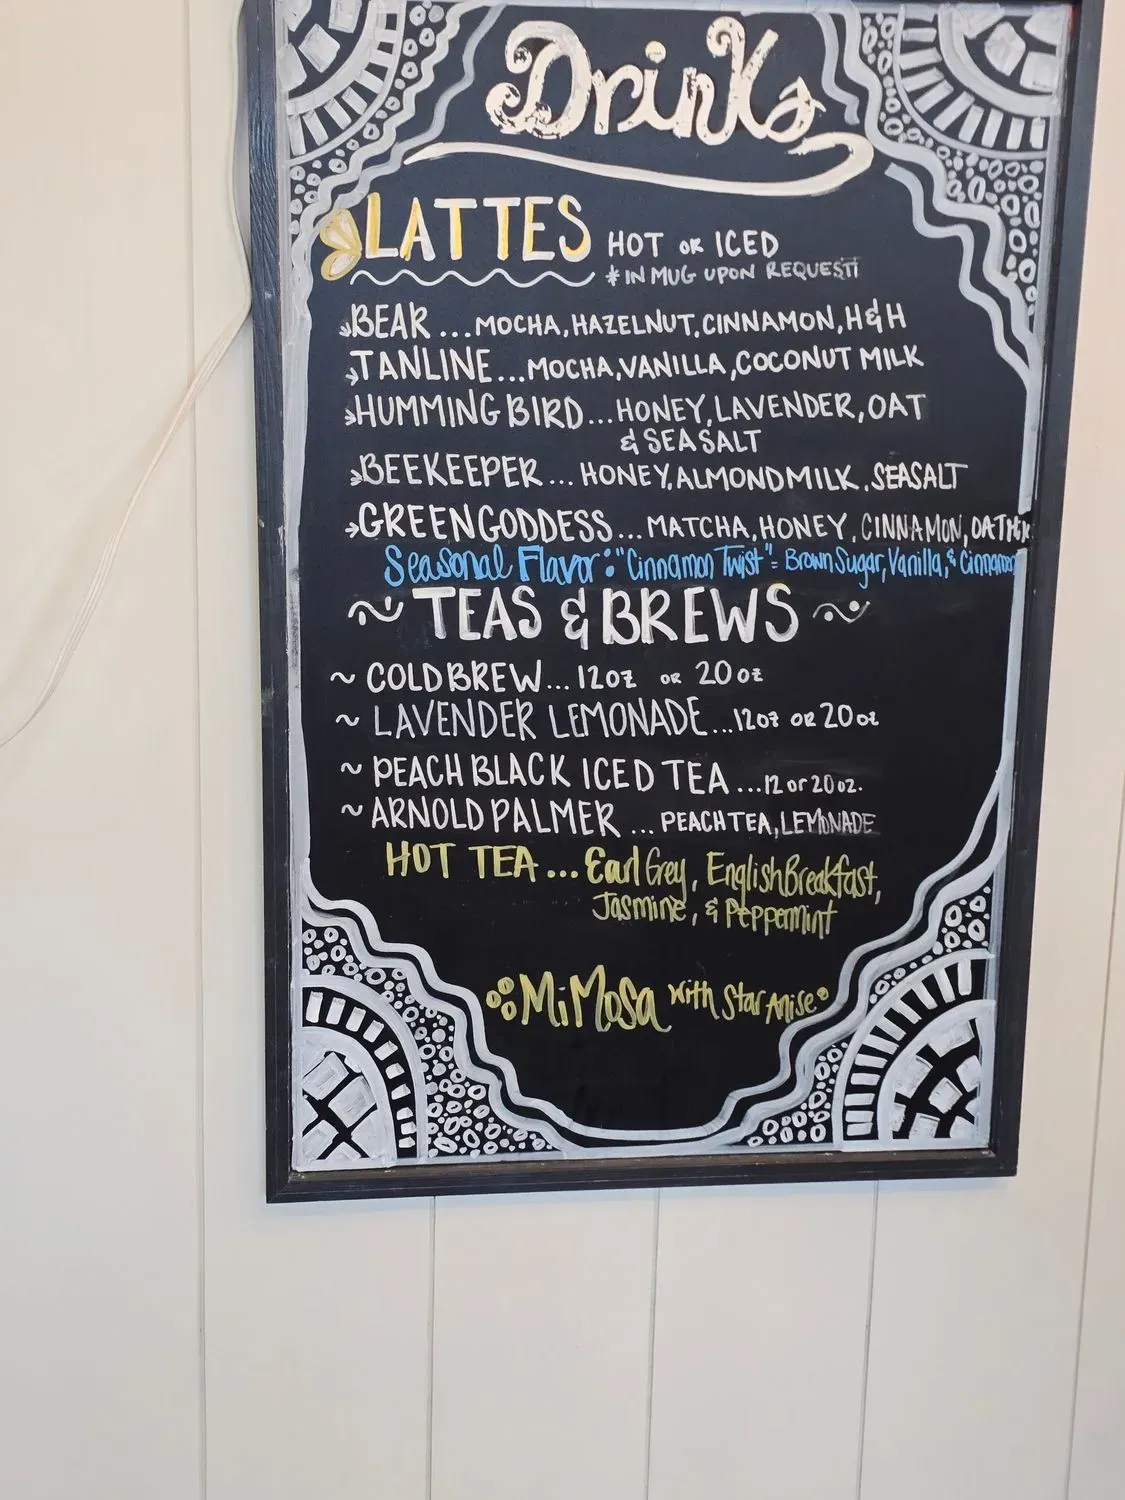 Drinks
LATTES HOT OR ICED
* IN MUG UPON REQUEST!
BEAR ... MOCHA, HAZELNUT, CINNAMON, H&H
TANLINE ... MOCHA, VANILLA, COCONUT MILK
HUMMING BIRD ... HONEY, LAVENDER, OAT
& SEA SALT
BEEKEEPER ... HONEY, ALMOND MILK, SEA SALT
GREEN GODDESS ... MATCHA, HONEY, CINNAMON, OATMILK
Seasonal Flavor: "Cinnamon Twist" = Brown Sugar, Vanilla, & Cinnamon
TEAS & BREWS
~ COLD BREW ... 12oz OR 20oz
~ LAVENDER LEMONADE ... 12oz OR 20oz
~ PEACH BLACK ICED TEA ... 12 or 20oz.
~ ARNOLD PALMER ... PEACH TEA, LEMONADE
HOT TEA ... Earl Grey, English Breakfast,
Jasmine, & Peppermint
MiMosa with Star Anise